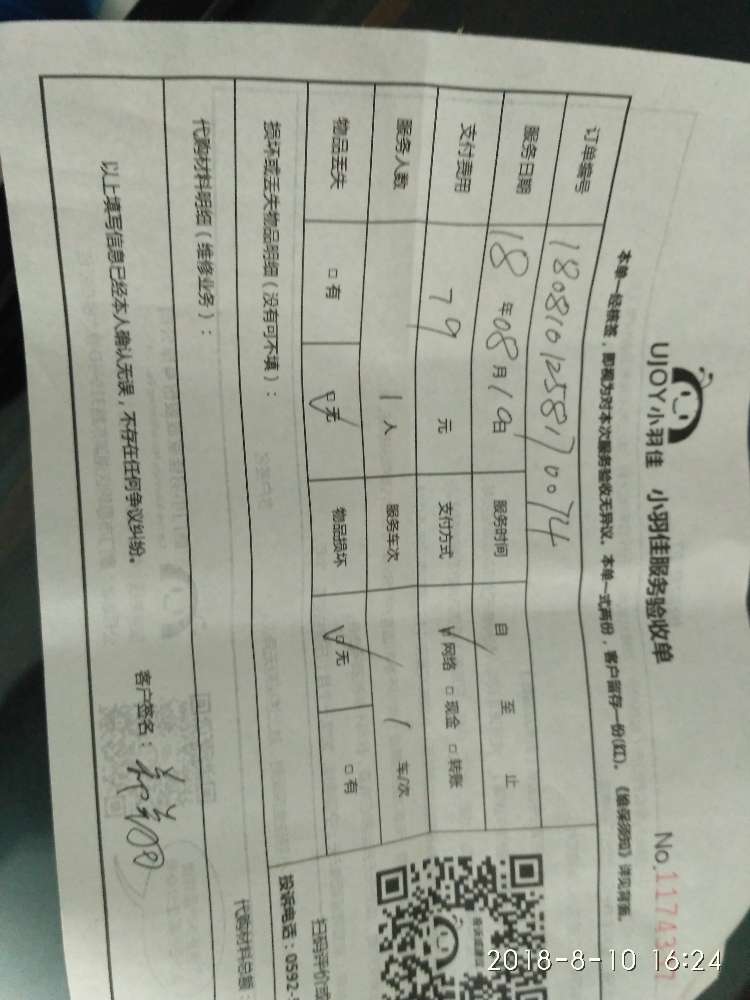 UJOY小羽佳 小羽佳服务验收单 No.117437
本单一经核签，即视为对本次服务验收无异议。本单一式两份，客户留存一份(红)。《维保须知》详见背面。
订单编号 180810125817 0074
服务日期 18年08月10日 服务时间 自 至 止
支付费用 79 元 支付方式 ☑网络 □现金 □转账
服务人数 1人 服务车次 / 车/次
物品丢失 □有 ☑无 物品损坏 ☑无 □有
损坏或丢失物品明细（没有可不填）：
扫码评价或
投诉电话：0592-
代购材料明细（维修业务）：
代购材料总额：
以上填写信息已经本人确认无误，不存在任何争议纠纷。
客户签名：
2018-8-10 16:24